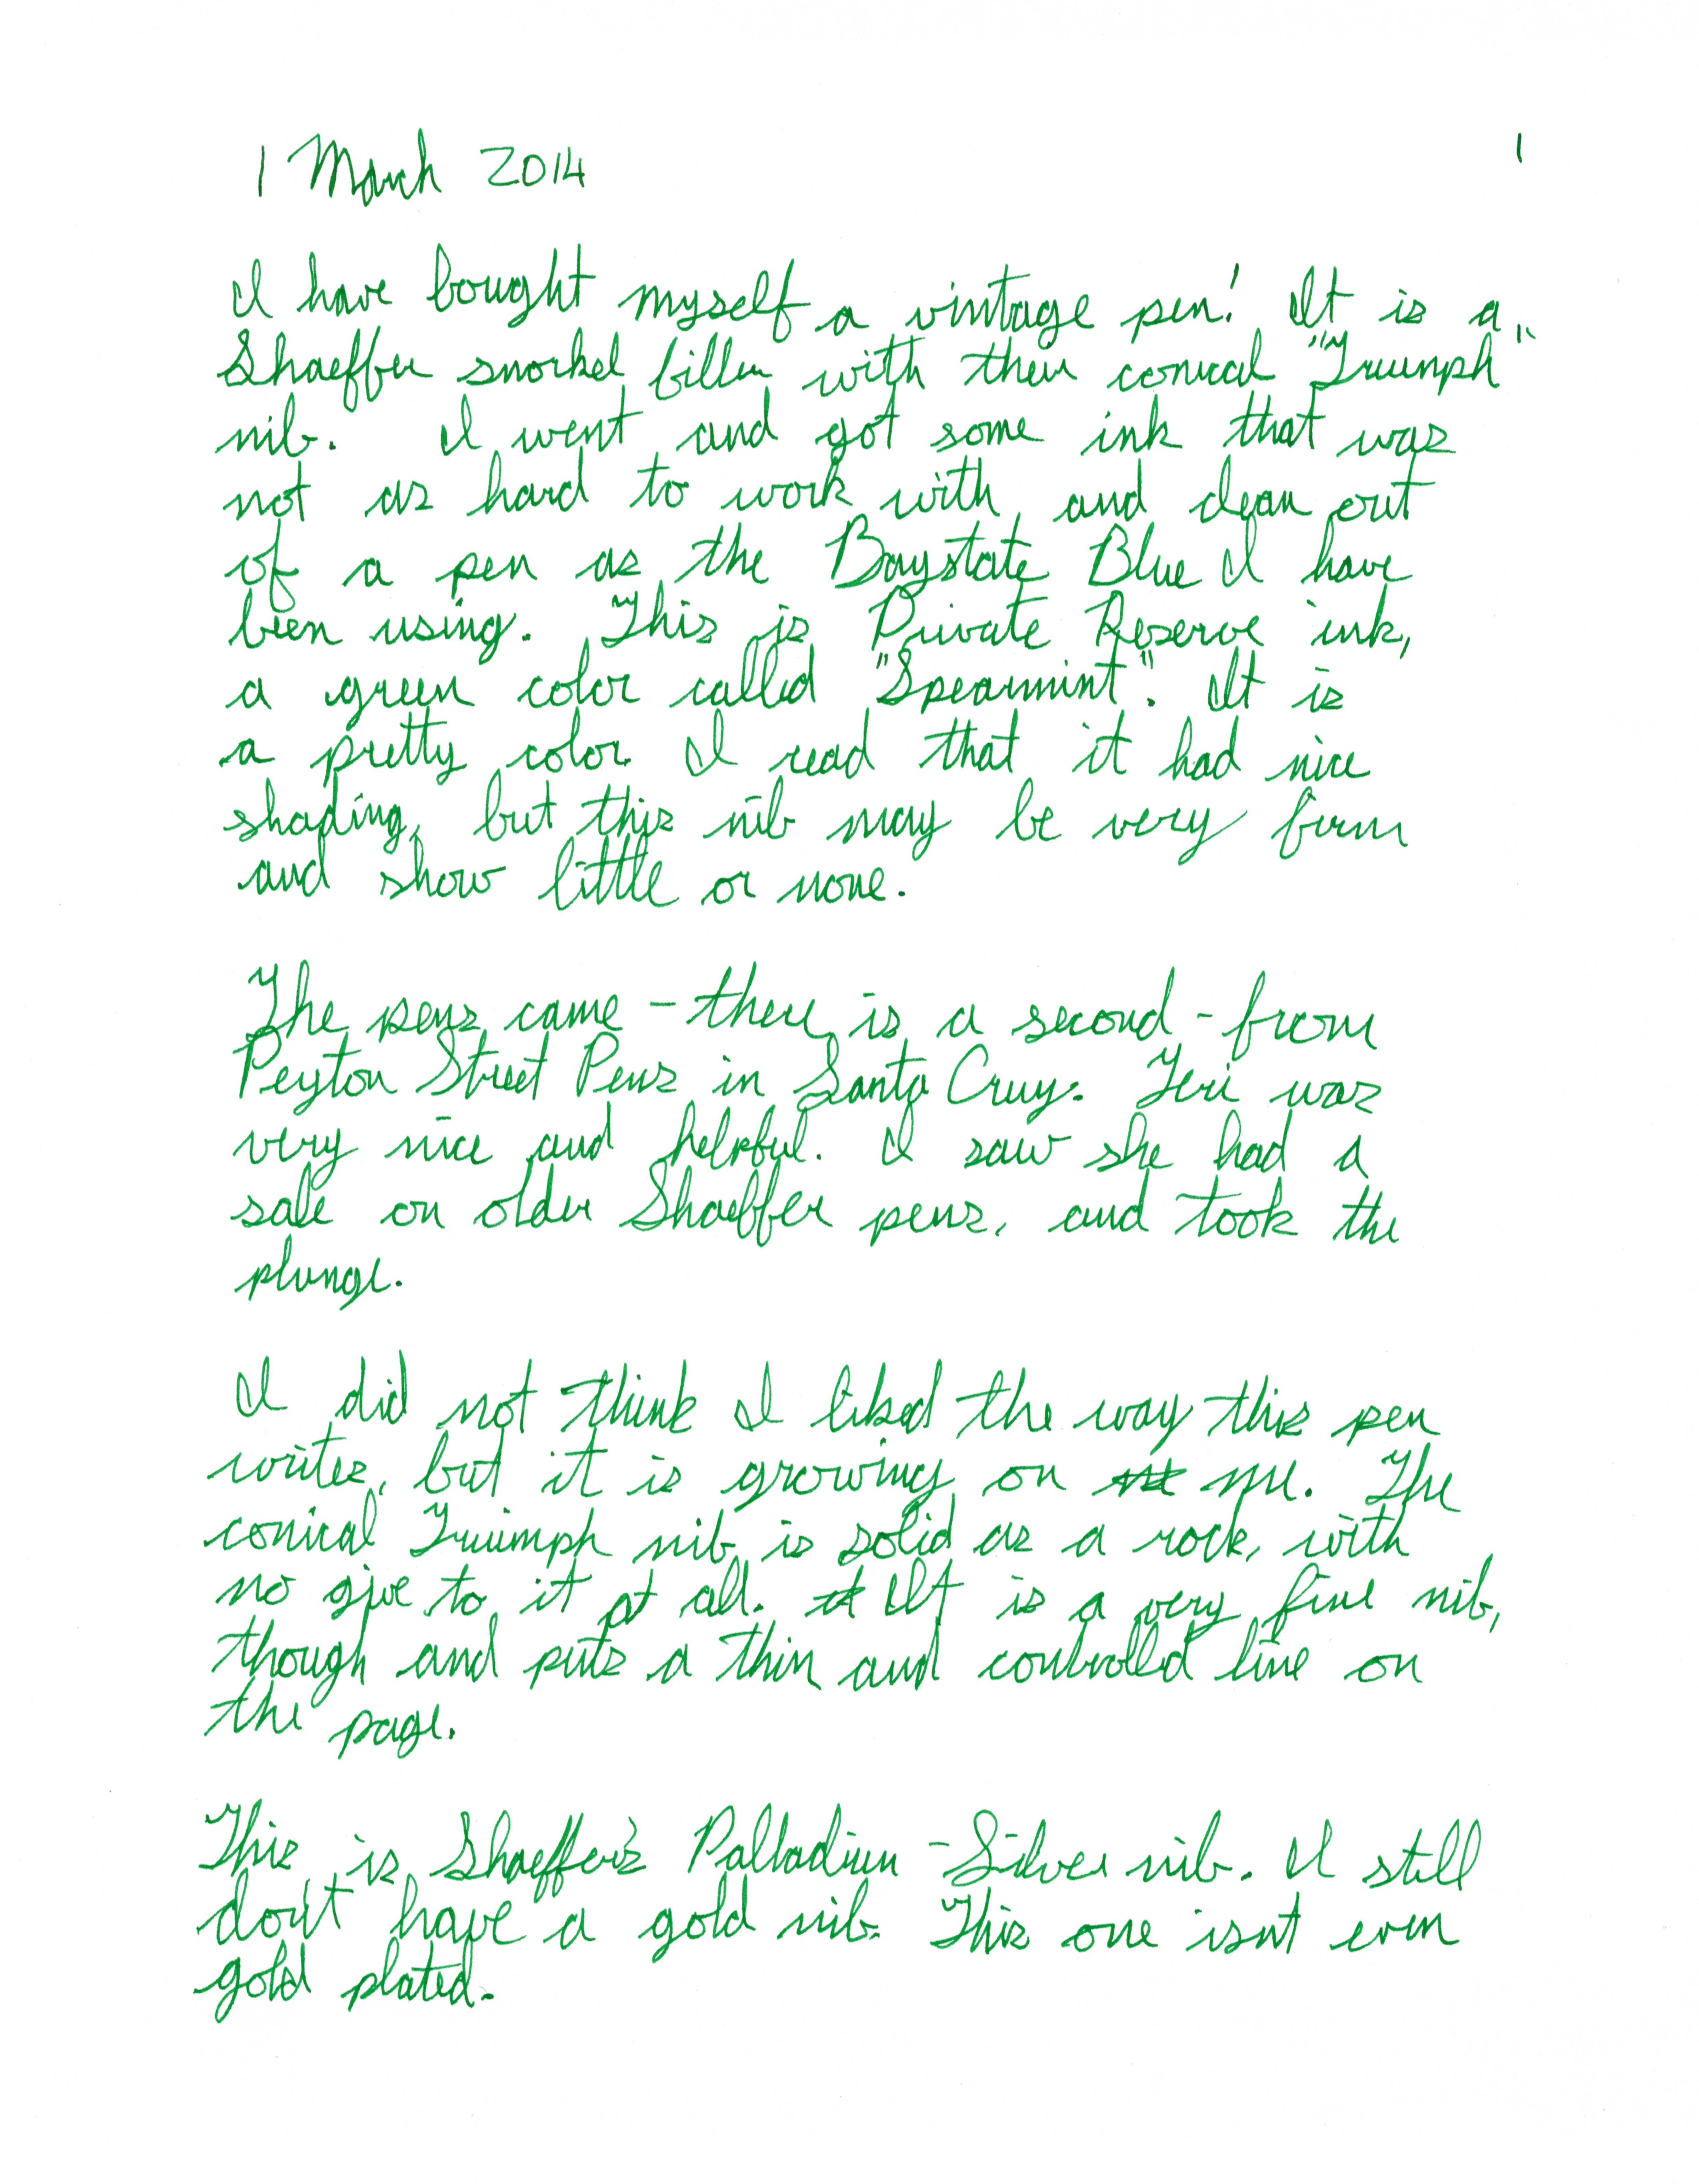 1 March 2014
1
I have bought myself a vintage pen! It is a
Shaeffer snorkel filler with their conical "Triumph"
nib. I went and got some ink that was
not as hard to work with and clean out
of a pen as the Baystate Blue I have
been using. This is Private Reserve ink,
a green color called "Spearmint". It is
a pretty color. I read that it had nice
shading, but this nib may be very firm
and show little or none.
The pens came - there is a second - from
Peyton Street Pens in Santa Cruz. Teri was
very nice and helpful. I saw she had a
sale on older Shaeffer pens, and took the
plunge.
I did not think I liked the way this pen
writes, but it is growing on me. The
conical Triumph nib is solid as a rock, with
no give to it at all. It is a very fine nib,
though and puts a thin and controlled line on
the page.
This is Shaeffer's Palladium-Silver nib. I still
don't have a gold nib. This one isn't even
gold plated.